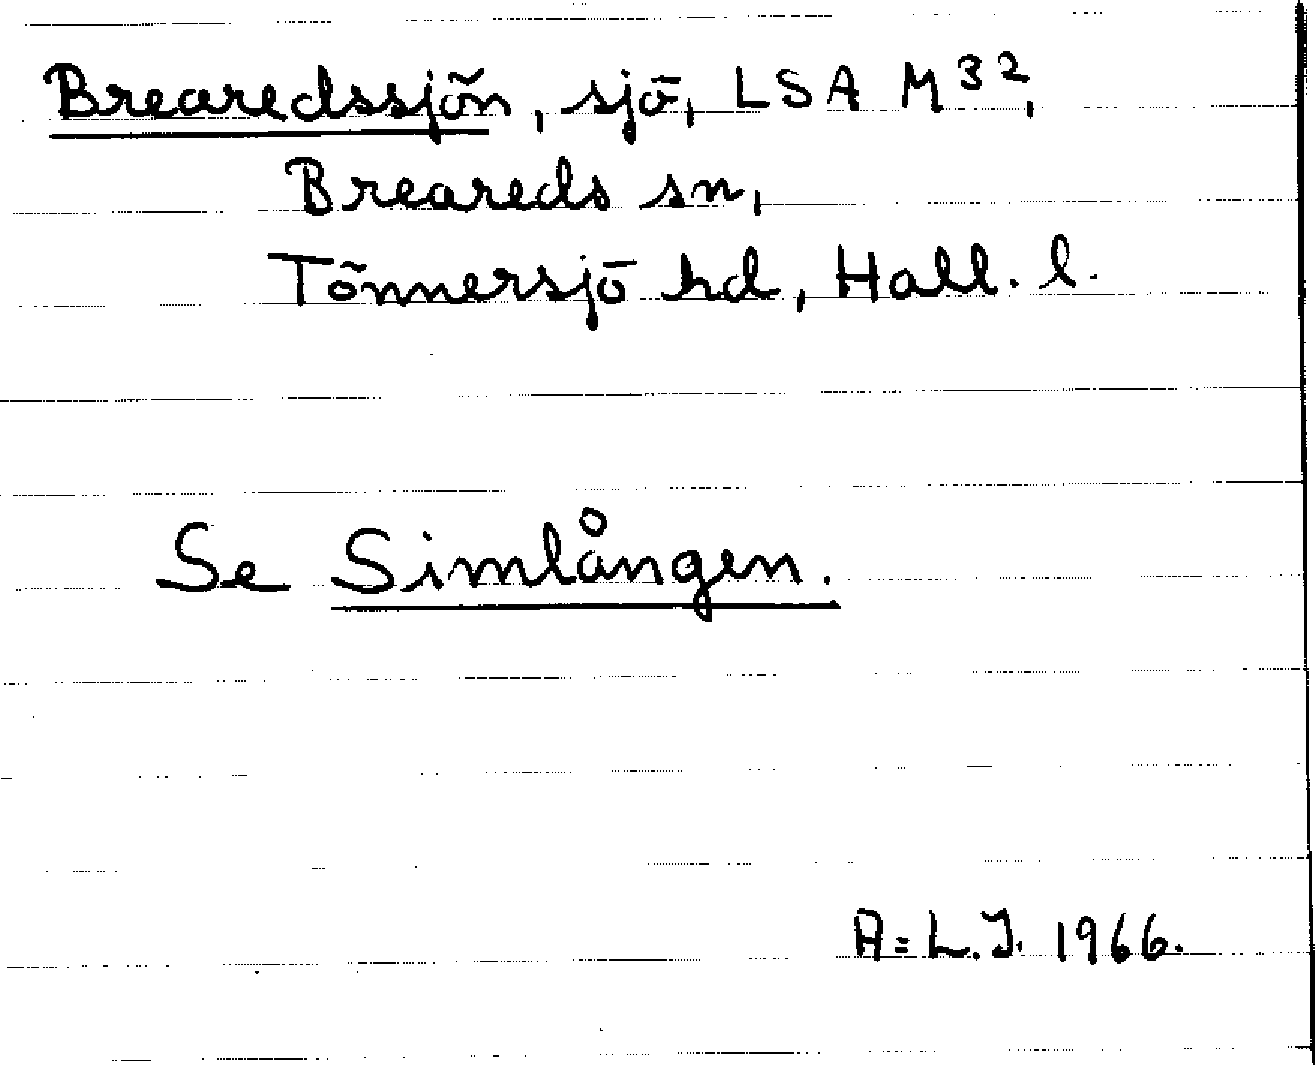 Brearedssjön, sjö, LSA M32,
Breareds sn,
Tönnersjö hd, Hall. l.
Se Simlången.
A=L.J. 1966.